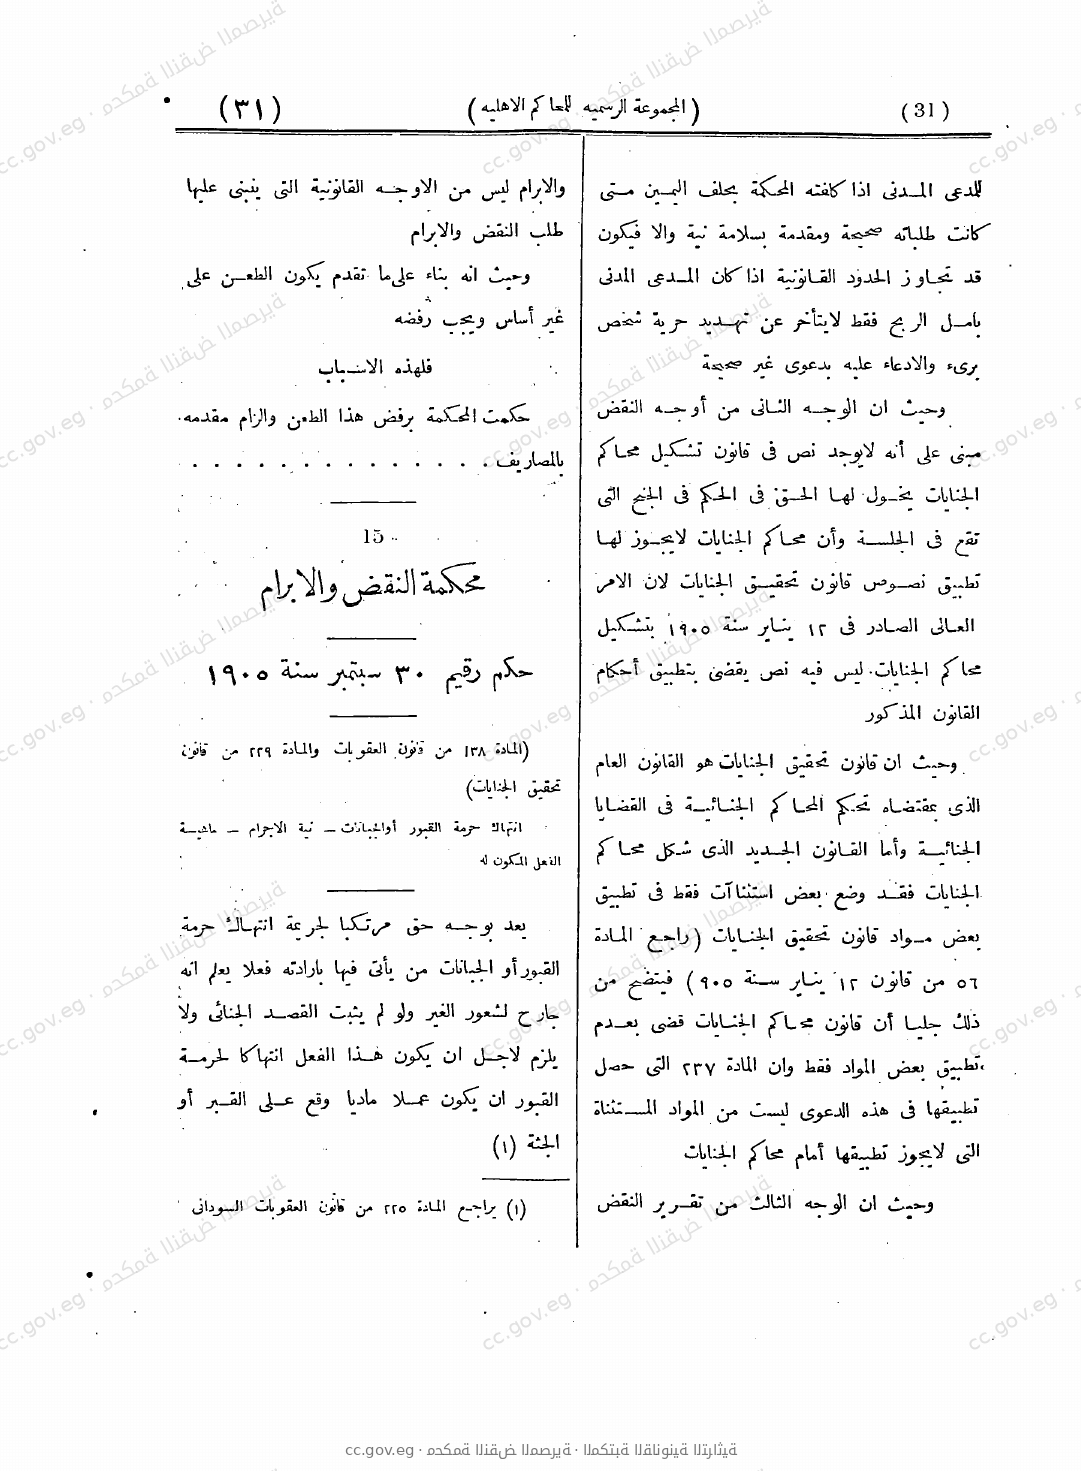 (٣١)
(المجموعة الرسمية للمحاكم الاهليه)
(31)
للمدعى المدنى اذا كلفته المحكمة بحلف اليمين متى
كانت طلباته صحيحة ومقدمة بسلامة نية والا فيكون
قد تجاوز الحدود القانونية اذا كان المدعى المدنى
بأمل الربح فقط لا يتأخر عن تهديد حرية شخص
برىء والادعاء عليه بدعوى غير صحيحة
وحيث ان الوجه الثانى من أوجه النقض
مبنى على أنه لا يوجد نص فى قانون تشكيل محاكم
الجنايات يخول لها الحق فى الحكم فى الجنح التى
تقع فى الجلسة وأن محاكم الجنايات لا يجوز لها
تطبيق نصوص قانون تحقيق الجنايات لان الامر
العالى الصادر فى ١٢ يناير سنة ١٩٠٥ بتشكيل
محاكم الجنايات ليس فيه نص يقضى بتطبيق أحكام
القانون المذكور
وحيث ان قانون تحقيق الجنايات هو القانون العام
الذى بمقتضاه تحكم المحاكم الجنائية فى القضايا
الجنائية وأما القانون الجديد الذى شكل محاكم
الجنايات فقد وضع بعض استثناآت فقط فى تطبيق
بعض مواد قانون تحقيق الجنايات (راجع المادة
٥٦ من قانون ١٢ يناير سنة ٩٠٥) فيتضح من
ذلك جليا أن قانون محاكم الجنايات قضى بعدم
تطبيق بعض المواد فقط وان المادة ٢٣٧ التى حصل
تطبيقها فى هذه الدعوى ليست من المواد المستثناة
التى لا يجوز تطبيقها أمام محاكم الجنايات
وحيث ان الوجه الثالث من تقرير النقض
والابرام ليس من الاوجه القانونية التى ينبنى عليها
طلب النقض والابرام
وحيث انه بناء على ما تقدم يكون الطعن على
غير أساس ويجب رفضه
فلهذه الاسباب
حكمت المحكمة برفض هذا الطعن والزام مقدمه
بالمصاريف . . . . . . . . . . . . . .
15
محكمة النقض والابرام
حكم رقيم ٣٠ سبتمبر سنة ١٩٠٥
(المادة ١٣٨ من قانون العقوبات والمادة ٢٢٩ من قانون
تحقيق الجنايات)
انتهاك حرمة القبور أو الجبانات – نية الاجرام – ماهية
الفعل المكون له
يعد بوجه حق مرتكبا لجريمة انتهاك حرمة
القبور أو الجبانات من يأتى فيها بارادته فعلا يعلم انه
جارح لشعور الغير ولو لم يثبت القصد الجنائى ولا
يلزم لاجل ان يكون هذا الفعل انتهاكا لحرمة
القبور ان يكون عملا ماديا وقع على القبر أو
الجثة (١)
(١) يراجع المادة ٢٢٥ من قانون العقوبات السودانى
cc.gov.eg · محكمة النقض المصرية · المكتبة القانونية التراثية